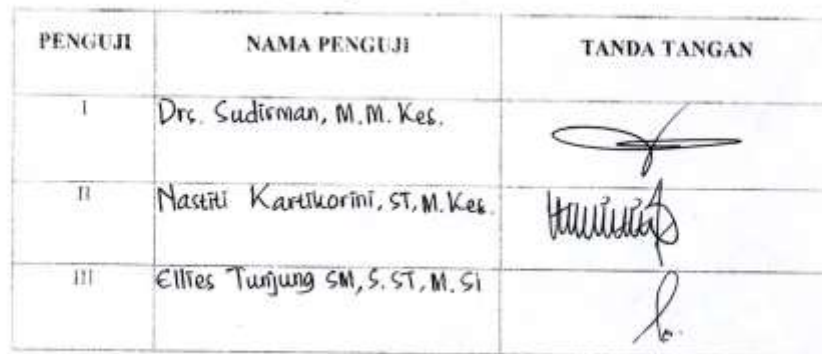 PENGUJI NAMA PENGUJI TANDA TANGAN
I Drs. Sudirman, M.M. Kes.
II Nastiti Kartikorini, ST, M. Kes.
III Ellies Tunjung SM, S.ST, M.Si